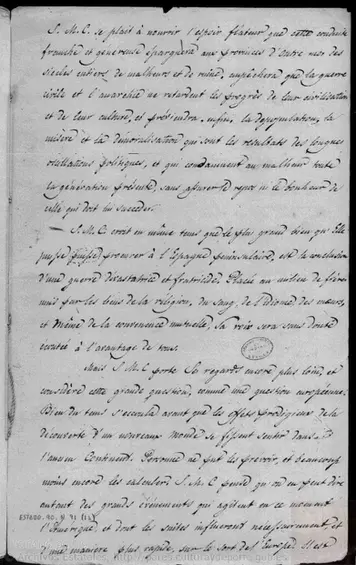 S. M. C. se plait à nourrir l'espoir flateur que cette conduite
franche et genereuse épargnera aux provinces d'Outre mer des
siecles entiers de malheurs et de ruine, empêchera que la guerre
civile et l'anarchie ne retardent les progrès de leur civilisation
et de leur culture, et préviendra enfin, la depopulation, la
misère et la démoralisation qui sont les resultats des longues
oscillations politiques, et qui condamnent au malheur toute
la génération présente, sans assurer le repos ni le bonheur de
celle qui doit lui succeder.
S. M. C. croit en même tems que le plus grand bien qu'Elle
puisse procurer à l'Espagne péninsulaire, est la conclusion
d'une guerre dévastatrice et fratricide. Placée au milieu de frères
unis par les liens de la religion, du sang, de l'Idiome des mœurs,
et même de la convenance mutuelle, Sa voix sera sans doute
écoutée à l'avantage de tous.
Mais S. M. C. porte Sa regards encore plus loin, et
considère cette grande question, comme une question européenne.
Bien du tems s'ecoula avant que les effets prodigieux de la
découverte d'un nouveau monde se fissent sentir dans
l'ancien Continent. Personne ne put les prevoir, et beaucoup
moins encore les calculer. S. M. C. pense qu'on en peut dire
autant des grands événements qui agitent en ce moment
l'Amerique, et dont les suites influeront nécessairement, et
d'une manière plus rapide, sur le sort de l'Europe. Il est